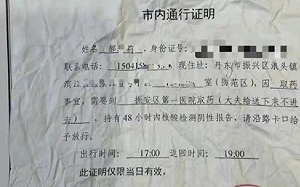 市内通行证明
姓名 郝 莉，身份证号：
联系电话：150415 现住址：丹东市振兴区浪头镇
滨江 室（防范区），因取药
事宜，需要到 振安区第一医院取药（大夫给送下来不进
去），持有48小时内核酸检测阴性报告，请沿路卡口给
予放行。
出行时间： 17:00 返回时间： 19:00
此证明仅限当日有效。